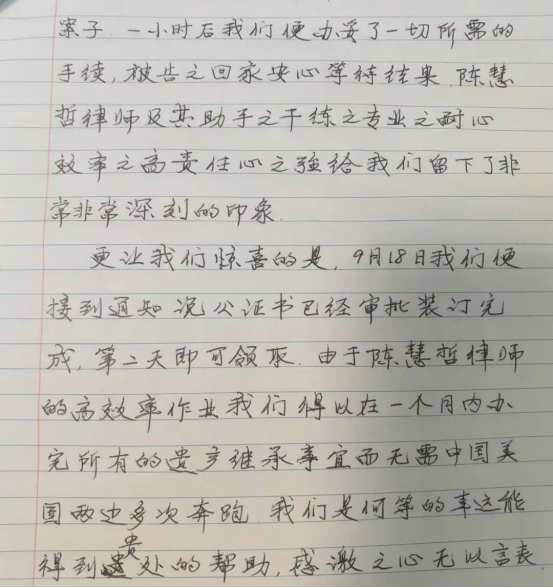 案子.一小时后我们便办妥了一切所需的
手续,被告之回家安心等待结果.陈慧
哲律师及其助手之干练之专业之耐心
效率之高责任心之强给我们留下了非
常非常深刻的印象.
更让我们惊喜的是,9月18日我们便
接到通知说公证书已经审批装订完
成,第二天即可领取.由于陈慧哲律师
的高效率作业我们得以在一个月内办
完所有的遗产继承事宜而无需中国美
国两边多次奔跑.我们是何等的幸运能
得到贵处的帮助,感激之心无以言表.